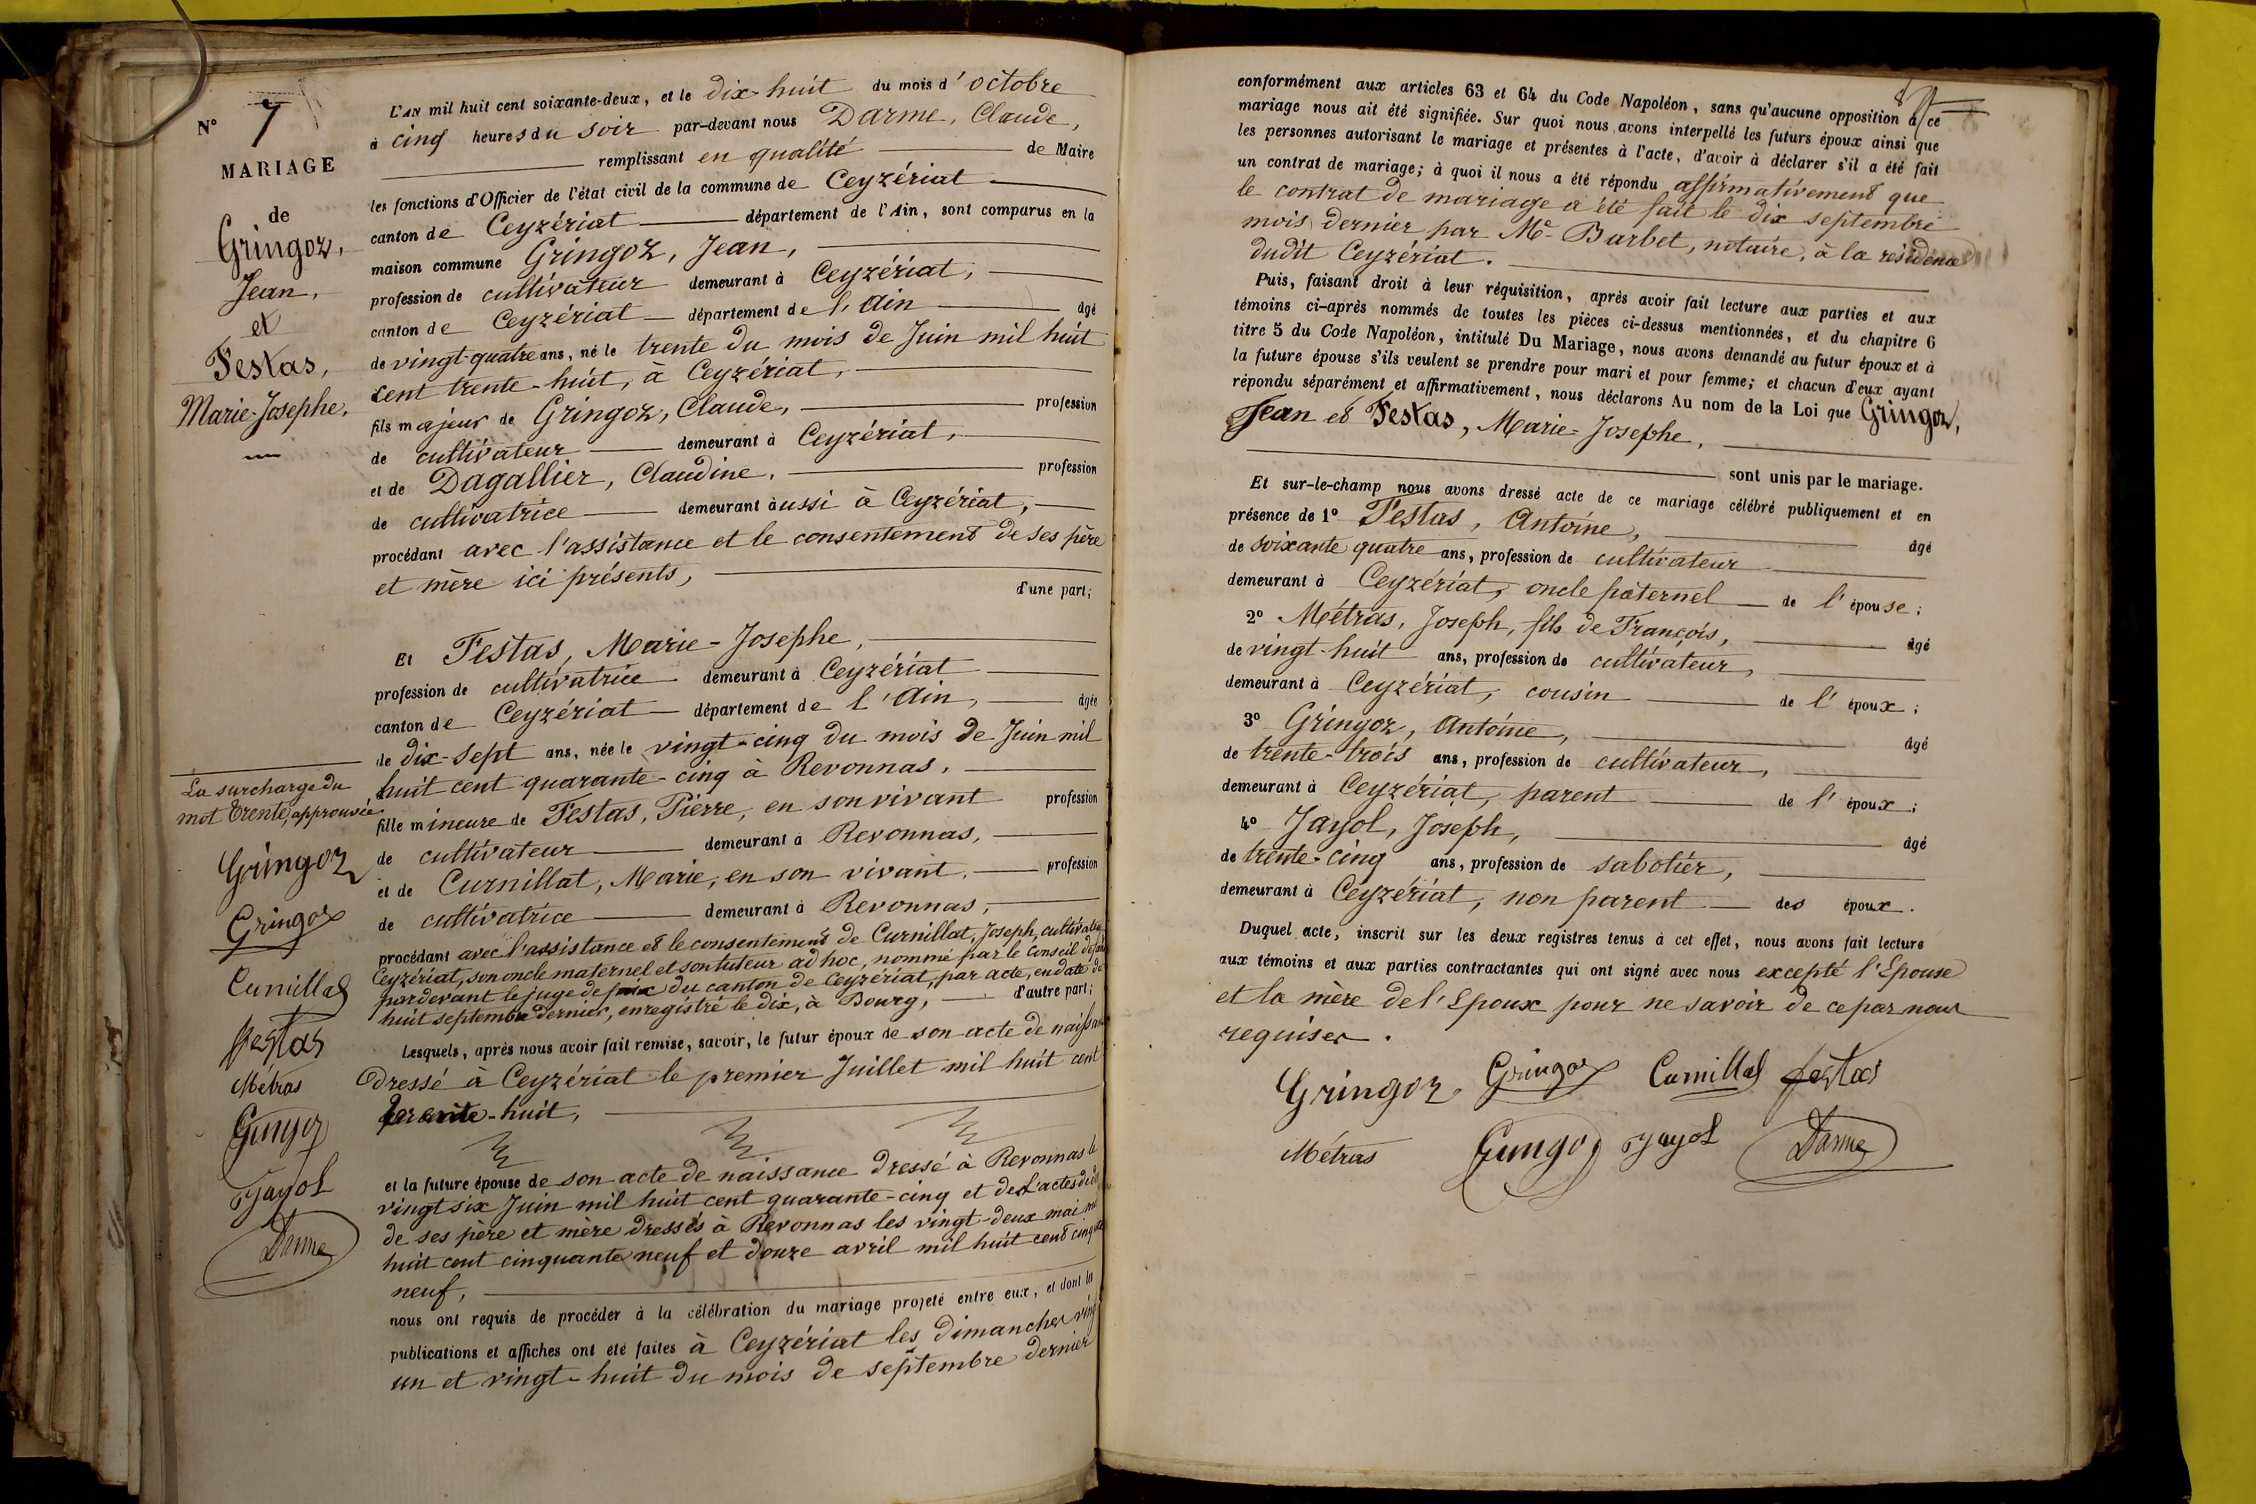 N° 7
MARIAGE
de
Gringoz,
Jean,
et
Festas,
Marie-Josephe.
La surcharge du
mot trente, approuvée
Gringoz
Gringoz
Curnillat
festas
Métras
Gringoz
Jayol
Darme
L'AN mil huit cent soixante-deux, et le dix-huit du mois d'octobre
à cinq heures du soir par-devant nous Darme, Claude,
remplissant en qualité de Maire
les fonctions d'Officier de l'état civil de la commune de Ceyzériat
canton de Ceyzériat département de l'Ain, sont comparus en la
maison commune Gringoz, Jean,
profession de cultivateur demeurant à Ceyzériat,
canton de Ceyzériat département de l'Ain âgé
de vingt-quatre ans, né le trente du mois de Juin mil huit
cent trente-huit, à Ceyzériat,
fils majeur de Gringoz, Claude, profession
de cultivateur demeurant à Ceyzériat,
et de Dagallier, Claudine, profession
de cultivatrice demeurant aussi à Ceyzériat,
procédant avec l'assistance et le consentement de ses père
et mère ici présents,
d'une part;
Et Festas, Marie-Josephe,
profession de cultivatrice demeurant à Ceyzériat
canton de Ceyzériat département de l'Ain, âgée
de dix-sept ans, née le vingt-cinq du mois de Juin mil
huit cent quarante-cinq à Revonnas,
fille mineure de Festas, Pierre, en son vivant profession
de cultivateur demeurant à Revonnas,
et de Curnillat, Marie, en son vivant, profession
de cultivatrice demeurant à Revonnas,
procédant avec l'assistance et le consentement de Curnillat, Joseph, cultivateur
Ceyzériat, son oncle maternel et son tuteur ad hoc, nommé par le Conseil de
pardevant le juge de paix du canton de Ceyzériat, par acte, en date du
huit septembre dernier, enregistré le dix, à Bourg, d'autre part;
Lesquels, après nous avoir fait remise, savoir, le futur époux de son acte de naissance
dressé à Ceyzériat le premier Juillet mil huit cent
trente-huit,
et la future épouse de son acte de naissance dressé à Revonnas le
vingt six Juin mil huit cent quarante-cinq et des actes de
de ses père et mère dressés à Revonnas les vingt-deux mai mil
huit cent cinquante neuf et douze avril mil huit cent cinquante
neuf,
nous ont requis de procéder à la célébration du mariage projeté entre eux, et dont les
publications et affiches ont été faites à Ceyzériat les dimanches vingt
un et vingt-huit du mois de septembre dernier
conformément aux articles 63 et 64 du Code Napoléon, sans qu'aucune opposition à ce
mariage nous ait été signifiée. Sur quoi nous avons interpellé les futurs époux ainsi que
les personnes autorisant le mariage et présentes à l'acte, d'avoir à déclarer s'il a été fait
un contrat de mariage; à quoi il nous a été répondu affirmativement que
le contrat de mariage a été fait le dix septembre
mois dernier par Me Barbet, notaire, à la résidence
dudit Ceyzériat.
Puis, faisant droit à leur réquisition, après avoir fait lecture aux parties et aux
témoins ci-après nommés de toutes les pièces ci-dessus mentionnées, et du chapitre 6
titre 5 du Code Napoléon, intitulé Du Mariage, nous avons demandé au futur époux et à
la future épouse s'ils veulent se prendre pour mari et pour femme; et chacun d'eux ayant
répondu séparément et affirmativement, nous déclarons Au nom de la Loi que Gringoz,
Jean et Festas, Marie-Josephe,
sont unis par le mariage.
Et sur-le-champ nous avons dressé acte de ce mariage célébré publiquement et en
présence de 1° Festas, Antoine, âgé
de soixante quatre ans, profession de cultivateur
demeurant à Ceyzériat, oncle paternel de l'épouse;
2° Métras, Joseph, fils de François, âgé
de vingt-huit ans, profession de cultivateur,
demeurant à Ceyzériat, cousin de l'époux;
3° Gringoz, Antoine, âgé
de trente-trois ans, profession de cultivateur,
demeurant à Ceyzériat, parent de l'époux;
4° Jayol, Joseph, âgé
de trente-cinq ans, profession de sabotier,
demeurant à Ceyzériat, non parent des époux.
Duquel acte, inscrit sur les deux registres tenus à cet effet, nous avons fait lecture
aux témoins et aux parties contractantes qui ont signé avec nous excepté l'Epouse
et la mère de l'Epoux pour ne savoir de ce par nous
requises.
Gringoz Gringoz Curnillat festas
Métras Gringoz Jayol Darme